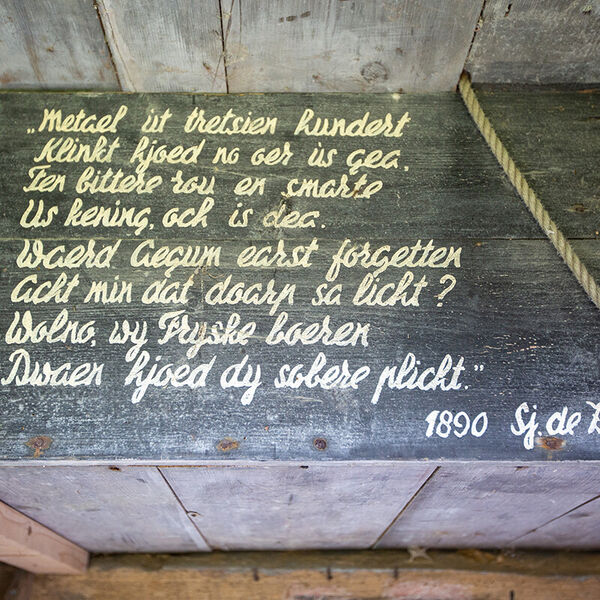 „Metael út tretsien hundert
Klinkt hjoed no oer ús gea,
Ien bittere rou en smarte
Us kening, och is dea.
Waerd Aegum earst forgetten
Acht min dat doarp sa licht?
Wolno, wy Fryske boeren
Dwaen hjoed dy sobere plicht."
1890 Sj. de